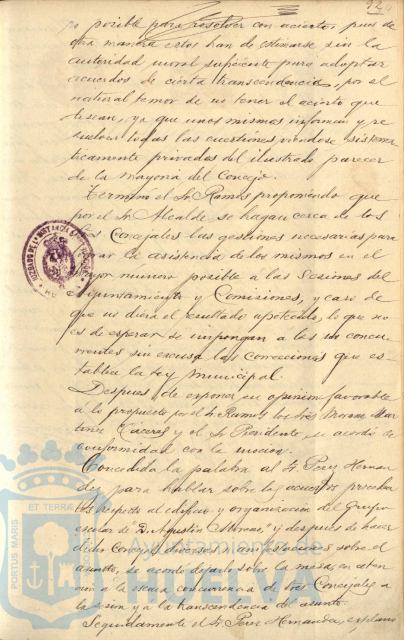 posible para resolver con acierto, pues de
otra manera estos han de estimarse sin la
autoridad moral suficiente para adoptar
acuerdos de cierta transcendencia, por el
natural temor de no tener el acierto que
desean, ya que unos mismos informan y re
suelven todas las cuestiones viendose sistema
ticamente privados del ilustrado parecer
de la mayoria del Concejo.
Terminó el Sr. Ramos proponiendo que
por el Sr. Alcalde se hagan cerca de los
Sres Concejales las gestiones necesarias para
la asistencia de los mismos en el
mayor numero posible a las Sesiones del
Ayuntamiento y Comisiones, y caso de
que no diera el resultado apetecido, lo que no
es de esperar se impongan a los no concu-
rrentes sin excusa las correcciones que es-
tablece la Ley municipal.
Despues de exponer su opinion favorable
a lo propuesto por el Sr. Ramos los Sres Moreno, Mar
tinez Caceres y el Sr. Presidente se acordó de
conformidad con la mocion.
Concedida la palabra al Sr. Perez Hernan
dez para hablar sobre los acuerdos
respecto al edificio y organizacion del Grupo
escolar de "D. Agustin Moreno" y despues de hacer
dichos Concejales diversas manifestaciones sobre el
asunto, se acordo dejarlo sobre la mesa en aten
cion a la escasa concurrencia de Sres Concejales a
la sesion y a la transcendencia del asunto.
Seguidamente el Sr. Perez Hernandez,
PORTUS MARIS
ET TERRAE
Ayuntamiento de
HUELVA